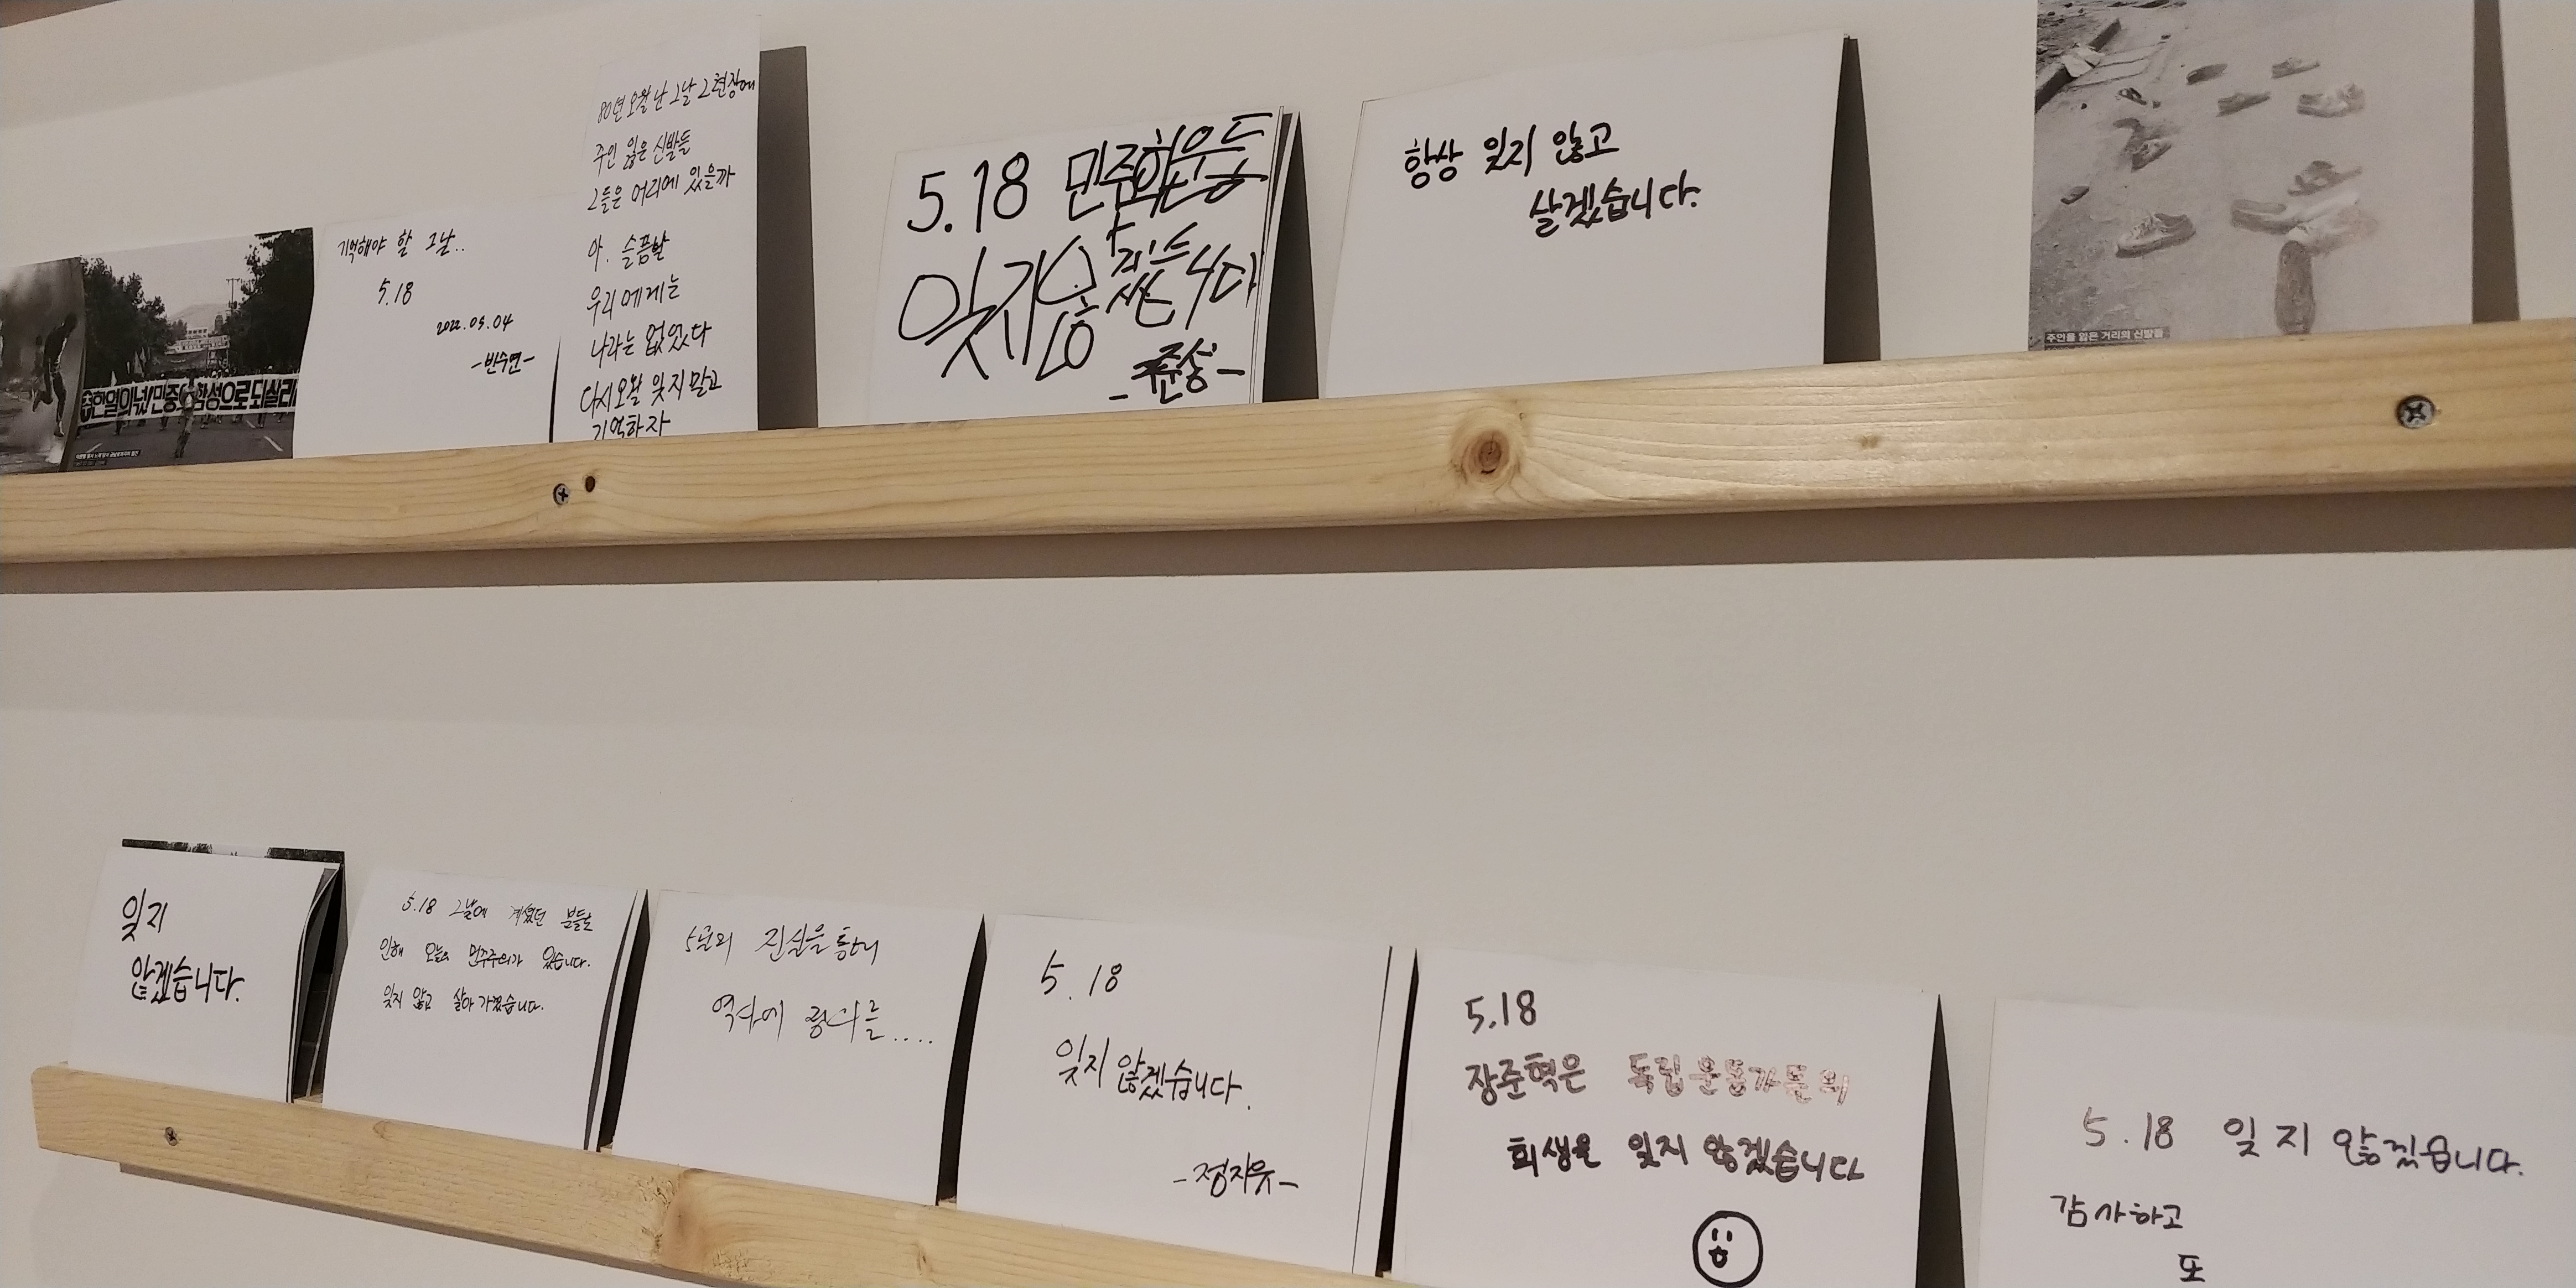 한열의 넋! 민중의 함성으로 되살리
기억해야 할 그날..
5.18
2022.05.04
-반수연-
80년 오월 난 그날 그 현장에
주인 잃은 신발들
그들은 어디에 있을까
아. 슬픔만
우리에게는
나라는 없었다
다시 오월 잊지 말고
기억하자
5.18 민주화운동
잊지 않
-준성-
항상 잊지 않고
살겠습니다.
주인을 잃은 거리의 신발들
잊지
않겠습니다.
5.18 그날에 계셨던 분들로
인해 오늘의 민주주의가 있습니다.
잊지 않고 살아가겠습니다.
진실을
역사에
5.18
잊지 않겠습니다.
-정지유-
5.18
장준혁은 독립운동가들의
희생을 잊지 않겠습니다
5.18 잊지 않겠습니다.
감사하고
또